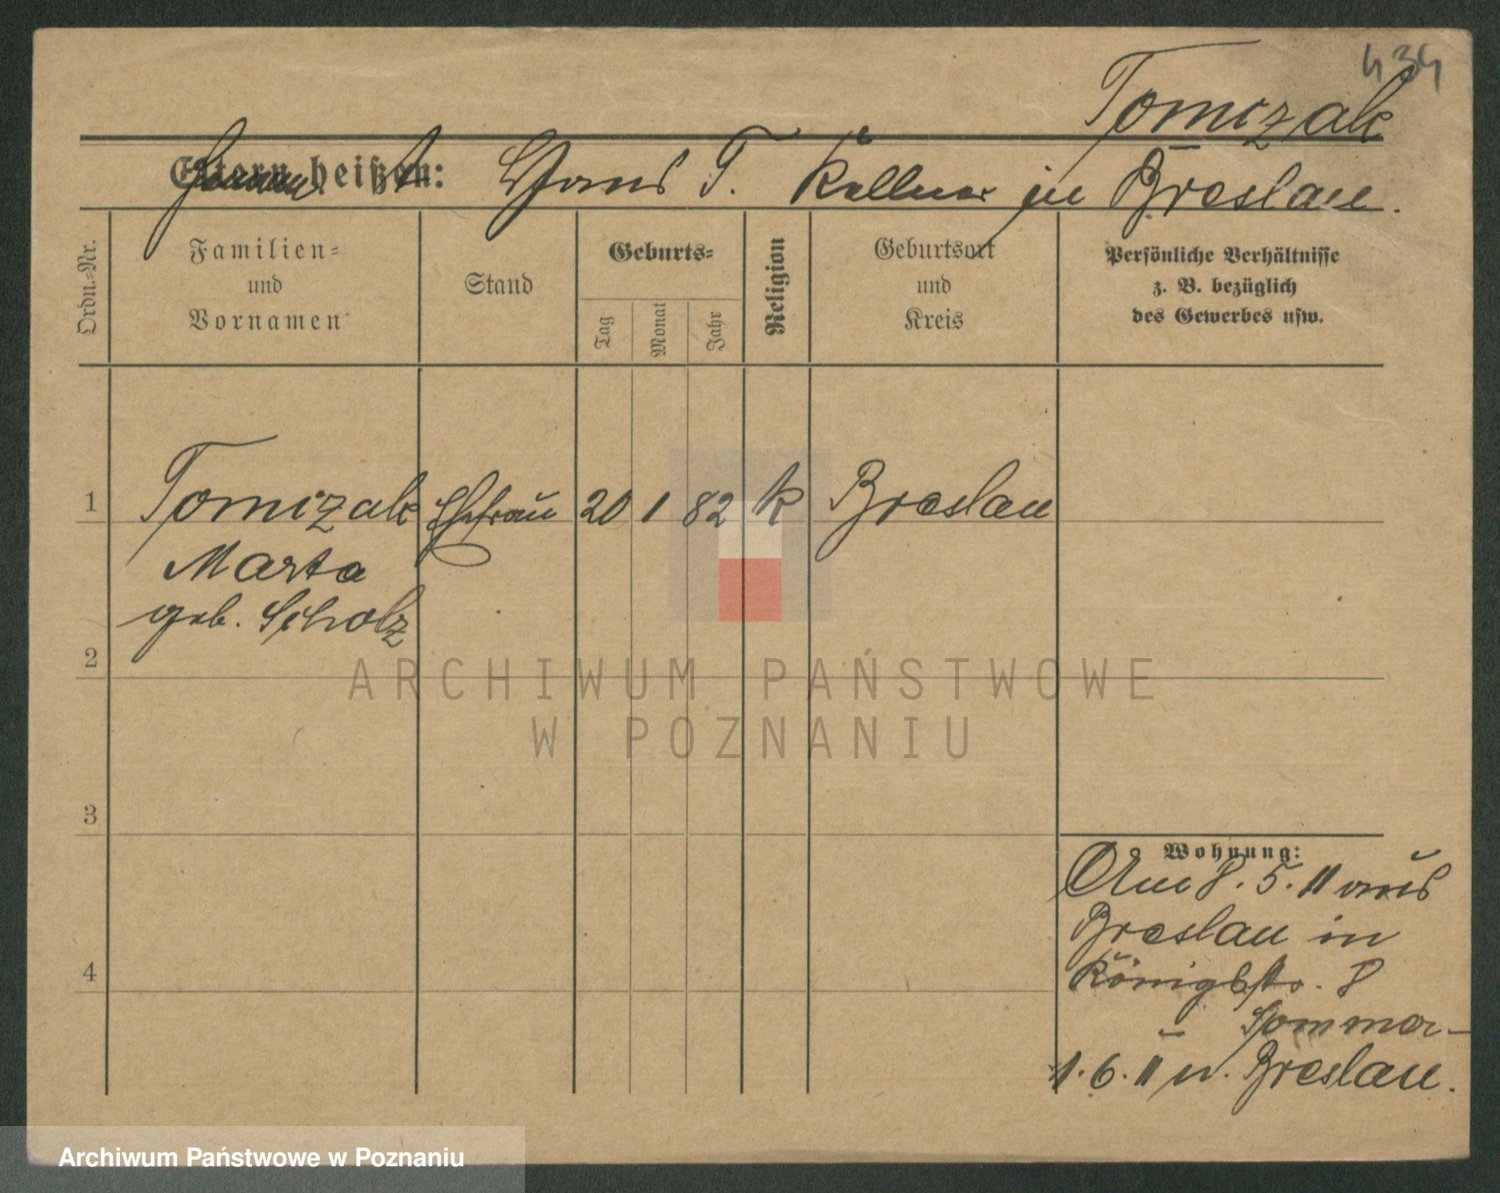 434
Tomczak
Eltern heißen: Hans T. Kellner in Breslau.
Ordn.-Nr.
Familien- und Vornamen
Stand
Geburts-
Tag
Monat
Jahr
Religion
Geburtsort und Kreis
Persönliche Verhältnisse
z. B. bezüglich
des Gewerbes usw.
1 Tomczak Ehefrau 20 1 82 k Breslau
Marta
geb. Scholz
2
3
4
Wohnung:
Am 8. 5. 11 aus
Breslau in
Königstr. 8
Sommer-
1. 6. 11 n. Breslau.
ARCHIWUM PAŃSTWOWE
W POZNANIU
Archiwum Państwowe w Poznaniu